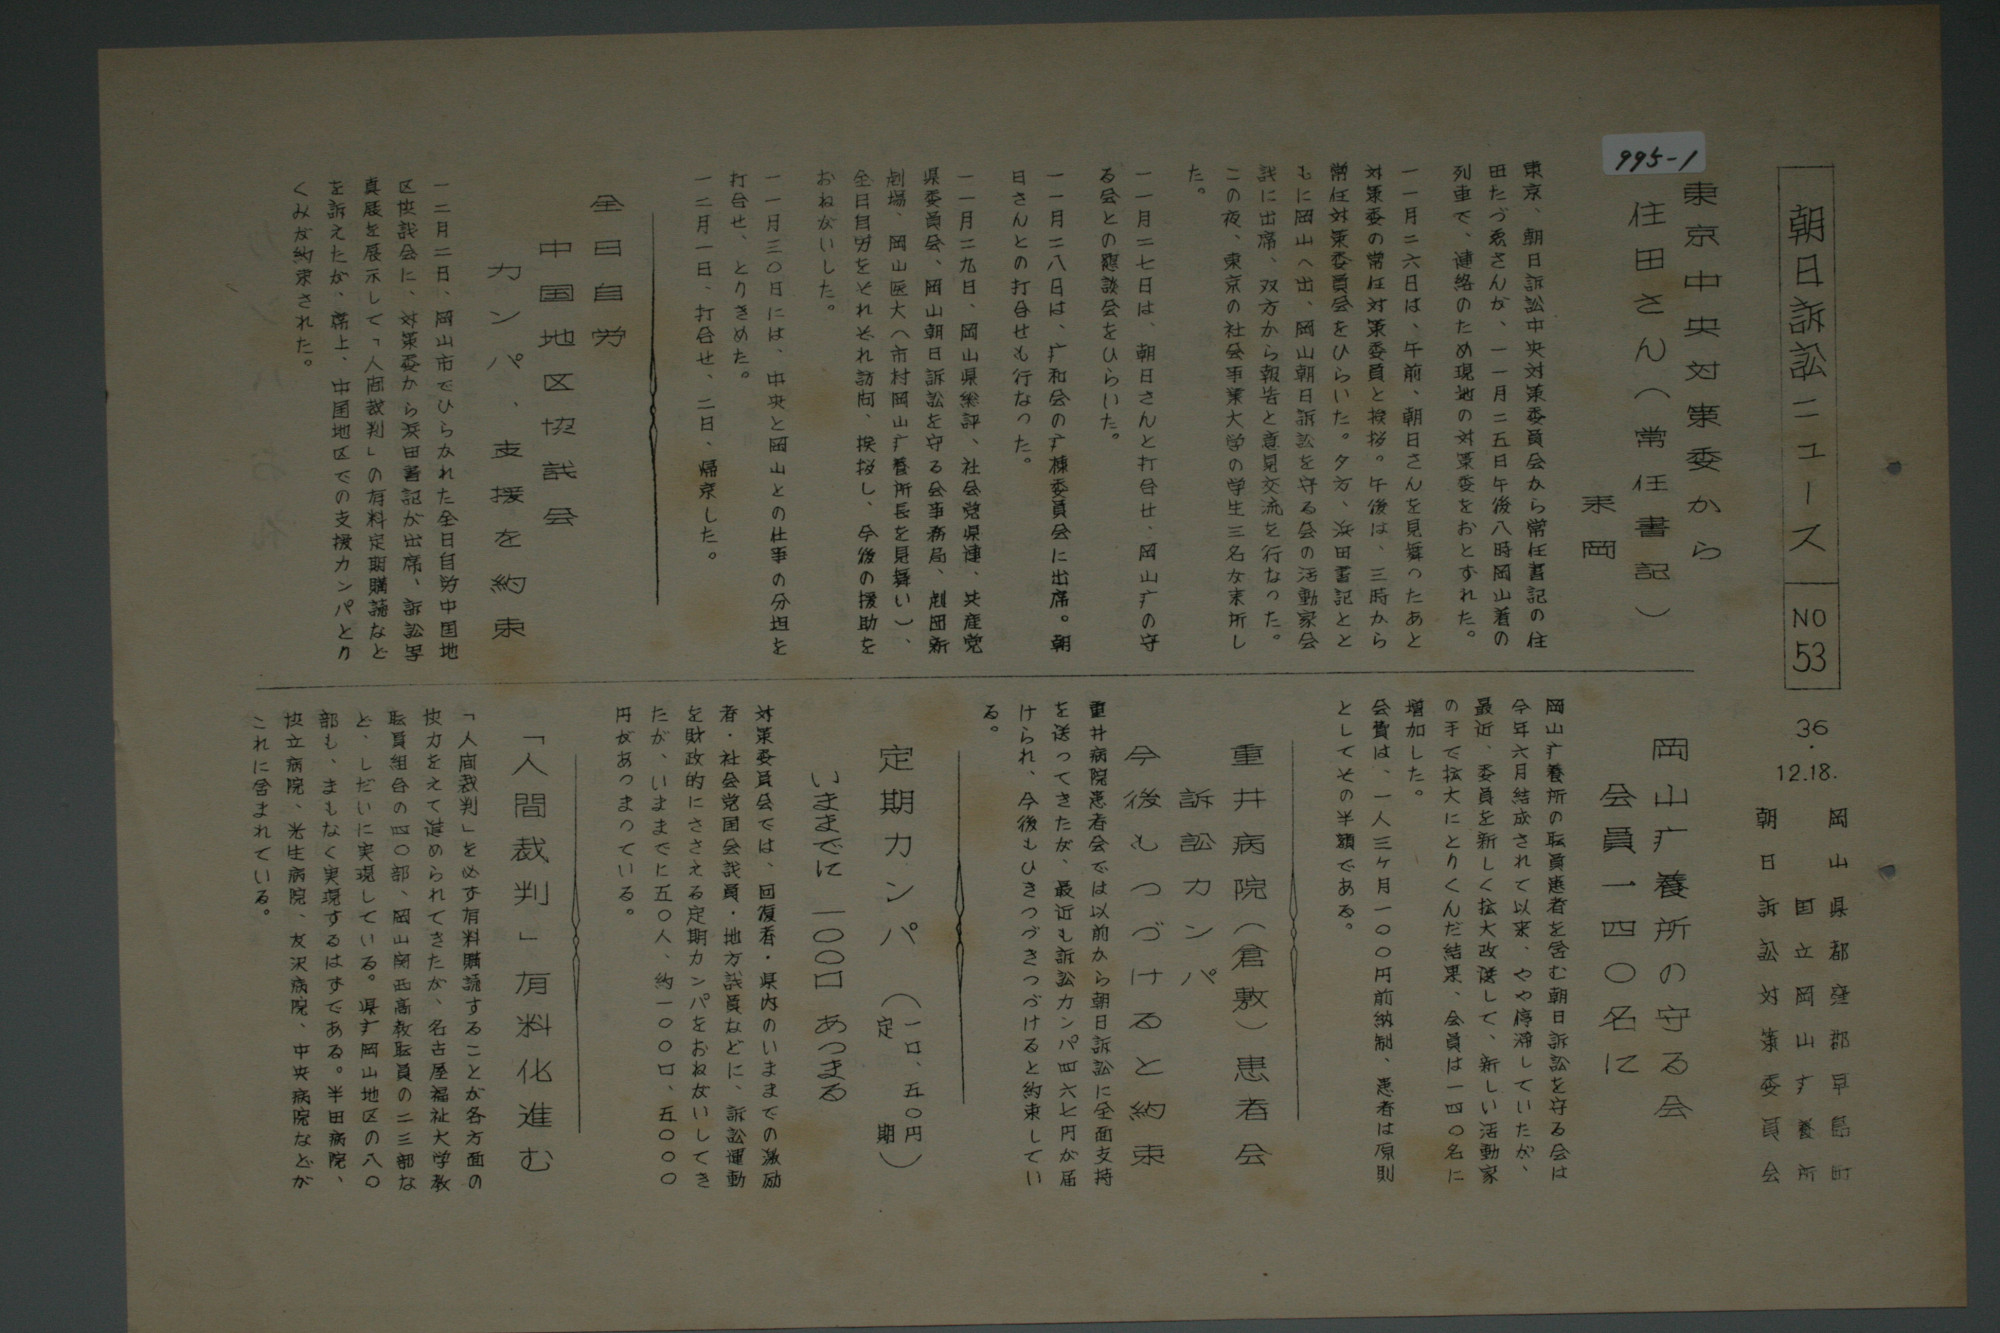 995-1
朝日訴訟ニュース
NO
53
36.
12.18.
岡山県都窪郡早島町
国立岡山疒養所
朝日訴訟対策委員会
東京中央対策委から
住田さん(常任書記)
来岡
東京、朝日訴訟中央対策委員会から常任書記の住
田たづゑさんが、一一月二五日午後八時岡山着の
列車で、連絡のため現地の対策委をおとずれた。
一一月二六日は、午前、朝日さんを見舞ったあと
対策委の常任対策委員と挨拶。午後は、三時から
常任対策委員会をひらいた。夕方、浜田書記とと
もに岡山へ出、岡山朝日訴訟を守る会の活動家会
議に出席、双方から報告と意見交流を行なった。
この夜、東京の社会事業大学の学生三名女来所し
た。
一一月二七日は、朝日さんと打合せ、岡山疒の守
る会との懇談会をひらいた。
一一月二八日は、疒和会の疒棟委員会に出席。朝
日さんとの打合せも行なった。
一一月二九日、岡山県総評、社会党県連、共産党
県委員会、岡山朝日訴訟を守る会事務局、劇団新
劇場、岡山医大へ市村岡山疒養所長を見舞い)、
全日自労をそれぞれ訪問、挨拶し、今後の援助を
おねがいした。
一一月三〇日には、中央と岡山との仕事の分担を
打合せ、とりきめた。
一二月一日、打合せ、二日、帰京した。
全日自労
中国地区協議会
カンパ、支援を約束
一二月二日、岡山市でひらかれた全日自労中国地
区協議会に、対策委から浜田書記が出席、訴訟写
真展を展示して「人間裁判」の有料定期購読など
を訴えたが、席上、中国地区での支援カンパとり
くみが約束された。
岡山疒養所の守る会
会員一四〇名に
岡山疒養所の職員患者を含む朝日訴訟を守る会は
今年六月結成されて以来、やや停滞していたが、
最近、委員を新しく拡大改選して、新しい活動家
の手で拡大にとりくんだ結果、会員は一四〇名に
増加した。
会費は、一人三ヶ月一〇〇円前納制、患者は原則
としてその半額である。
重井病院(倉敷)患者会
訴訟カンパ
今後もつづけると約束
重井病院患者会では以前から朝日訴訟に全面支持
を送ってきたが、最近も訴訟カンパ四六七円が届
けられ、今後もひきつづきつづけると約束してい
る。
定期カンパ(一口、五〇円
定期)
いままでに 一〇〇口 あつまる
対策委員会では、回復者・県内のいままでの激励
者・社会党国会議員・地方議員などに、訴訟運動
を財政的にささえる定期カンパをおねがいしてき
たが、いままでに五〇人、約一〇〇口、五〇〇〇
円があつまっている。
「人間裁判」有料化進む
「人間裁判」を必ず有料購読することが各方面の
協力をえて進められてきたが、名古屋福祉大学教
職員組合の四〇部、岡山南西高教職員の二三部な
ど、しだいに実現している。県疒岡山地区の八〇
部も、まもなく実現するはずである。半田病院、
協立病院、光生病院、友沢病院、中央病院などが
これに含まれている。